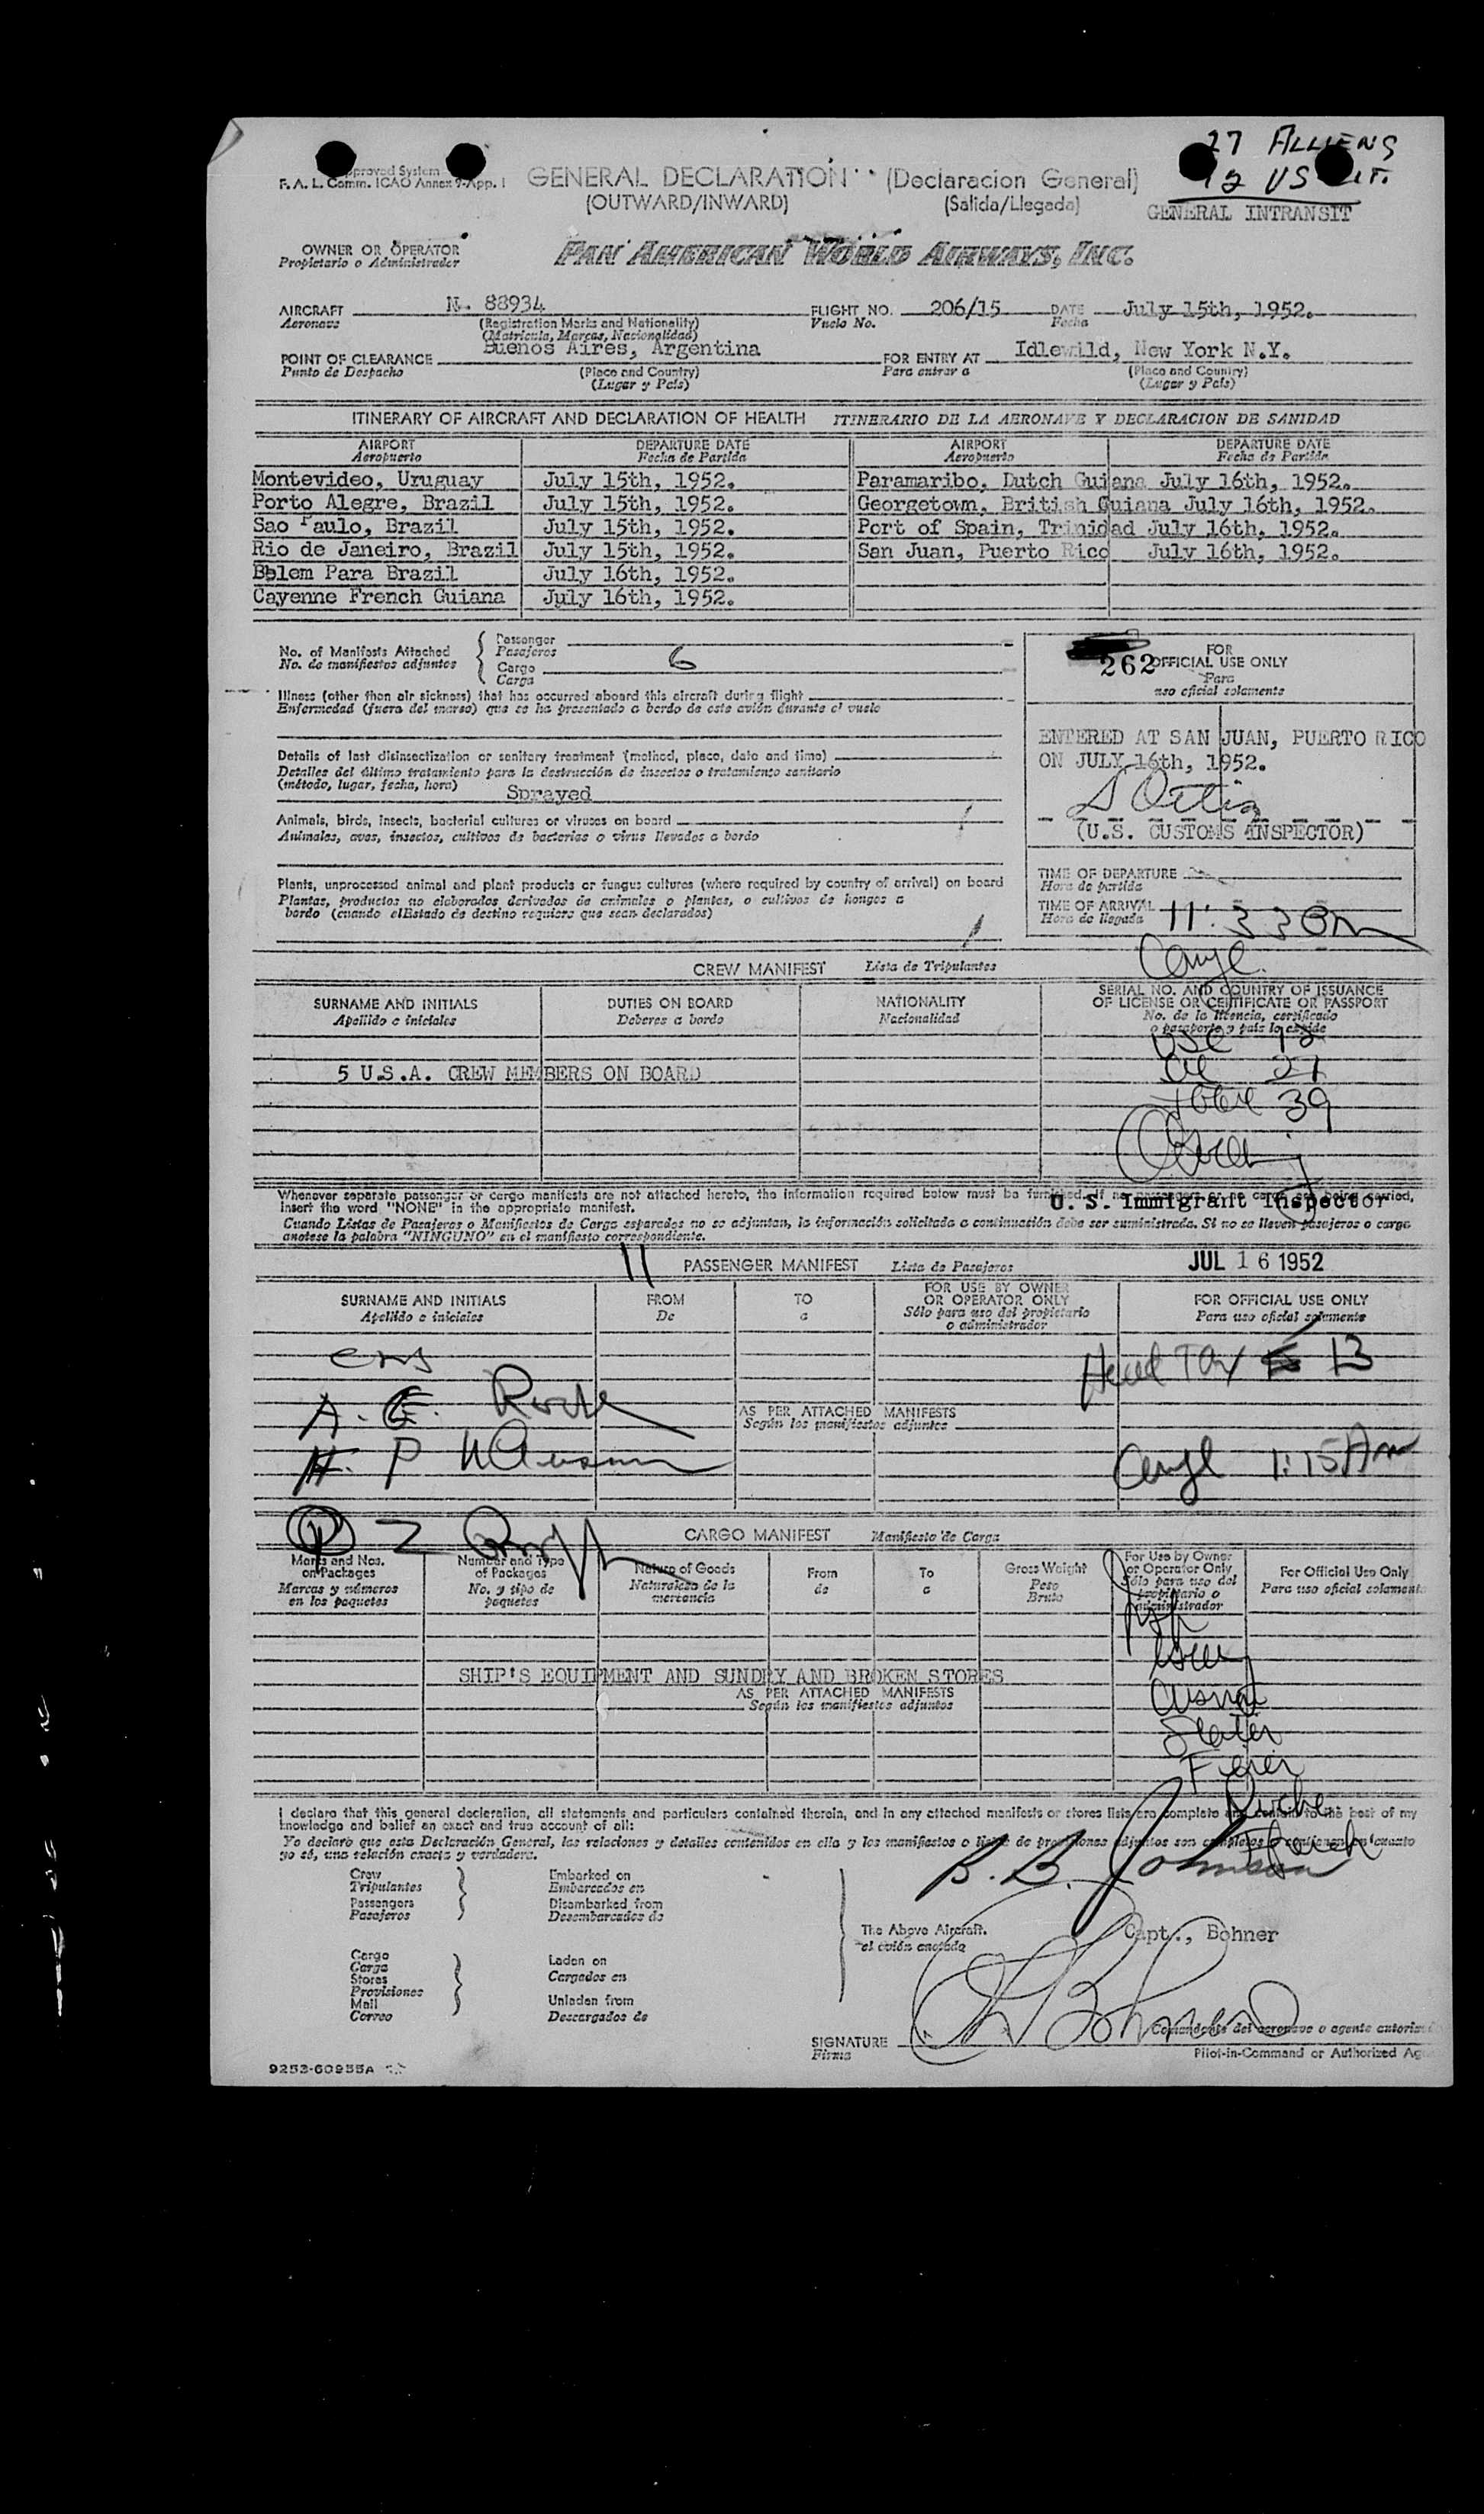 27 ALLIENS
12 US CIT.
F. A. L. Comm. ICAO Annex 9-App. I
GENERAL DECLARATION (Declaracion General)
(OUTWARD/INWARD) (Salida/Llegada)
GENERAL INTRANSIT
OWNER OR OPERATOR
Propietario o Administrador
PAN AMERICAN WORLD AIRWAYS, INC.
AIRCRAFT N. 88934 FLIGHT NO. 206/15 DATE July 15th, 1952.
Aeronave (Registration Marks and Nationality) Vuelo No. Fecha
(Matricula, Marcas, Nacionalidad)
POINT OF CLEARANCE Buenos Aires, Argentina FOR ENTRY AT Idlewild, New York N.Y.
Punto de Despacho (Place and Country) Para entrar a (Place and Country)
(Lugar y País) (Lugar y País)
ITINERARY OF AIRCRAFT AND DECLARATION OF HEALTH ITINERARIO DE LA AERONAVE Y DECLARACION DE SANIDAD
AIRPORT DEPARTURE DATE AIRPORT DEPARTURE DATE
Aeropuerto Fecha de Partida Aeropuerto Fecha de Partida
Montevideo, Uruguay July 15th, 1952. Paramaribo, Dutch Guiana July 16th, 1952.
Porto Alegre, Brazil July 15th, 1952. Georgetown, British Guiana July 16th, 1952.
Sao Paulo, Brazil July 15th, 1952. Port of Spain, Trinidad July 16th, 1952.
Rio de Janeiro, Brazil July 15th, 1952. San Juan, Puerto Rico July 16th, 1952.
Belem Para Brazil July 16th, 1952.
Cayenne French Guiana July 16th, 1952.
No. of Manifests Attached
No. de manifiestos adjuntos
Passenger
Pasajeros
Cargo 6
Carga
262
FOR
OFFICIAL USE ONLY
Para
uso oficial solamente
Illness (other than air sickness) that has occurred aboard this aircraft during flight
Enfermedad (fuera del mareo) que se ha presentado a bordo de este avión durante el vuelo
ENTERED AT SAN JUAN, PUERTO RICO
ON JULY 16th, 1952.
S Ortiz
(U.S. CUSTOMS INSPECTOR)
Details of last disinsectization or sanitary treatment (method, place, date and time)
Detalles del último tratamiento para la destrucción de insectos o tratamiento sanitario
(método, lugar, fecha, hora) Sprayed
Animals, birds, insects, bacterial cultures or viruses on board
Animales, aves, insectos, cultivos de bacterias o virus llevados a bordo
Plants, unprocessed animal and plant products or fungus cultures (where required by country of arrival) on board
Plantas, productos no elaborados derivados de animales o plantas, o cultivos de hongos a
bordo (cuando elEstado de destino requiera que sean declarados)
TIME OF DEPARTURE
Hora de partida
TIME OF ARRIVAL 11:33 Pm
Hora de llegada
CREW MANIFEST Lista de Tripulantes
SURNAME AND INITIALS DUTIES ON BOARD NATIONALITY SERIAL NO. AND COUNTRY OF ISSUANCE
OF LICENSE OR CERTIFICATE OR PASSPORT
Apellido e iniciales Deberes a bordo Nacionalidad No. de la licencia, certificado
o pasaporte y país lo expide
USC 12
5 U.S.A. CREW MEMBERS ON BOARD
27
Total 39
Whenever separate passenger or cargo manifests are not attached hereto, the information required below must be furnished. If no passengers or no cargo are being carried,
insert the word "NONE" in the appropriate manifest.
U. S. Immigrant Inspector
Cuando Listas de Pasajeros o Manifiestos de Carga separados no se adjuntan, la información solicitada a continuación debe ser suministrada. Si no se lleven pasajeros o carga
anotese la palabra "NINGUNO" en el manifiesto correspondiente.
11 PASSENGER MANIFEST Lista de Pasajeros JUL 16 1952
SURNAME AND INITIALS FROM TO FOR USE BY OWNER
OR OPERATOR ONLY FOR OFFICIAL USE ONLY
Apellido e iniciales De a Sólo para uso del propietario
o administrador Para uso oficial solamente
Head Tax 13
AS PER ATTACHED MANIFESTS
Según los manifiestos adjuntos
A. E.
H. P
1:15 Am
CARGO MANIFEST Manifiesto de Carga
Marks and Nos.
on Packages
Marcas y números
en los paquetes
Number and Type
of Packages
No. y tipo de
paquetes
Nature of Goods
Naturaleza de la
mercancía
From
de
To
a
Gross Weight
Peso
Bruto
For Use by Owner
or Operator Only
Sólo para uso del
propietario o
administrador
For Official Use Only
Para uso oficial solamente
SHIP'S EQUIPMENT AND SUNDRY AND BROKEN STORES
AS PER ATTACHED MANIFESTS
Según los manifiestos adjuntos
I declare that this general declaration, all statements and particulars contained therein, and in any attached manifests or stores lists are complete and contain to the best of my
knowledge and belief an exact and true account of all:
Yo declaro que esta Declaración General, las relaciones y detalles contenidos en ella y los manifiestos o listas de provisiones adjuntos son completos y contienen en cuanto
yo sé, una relación exacta y verdadera.
B. B. Johnson
Crew
Tripulantes
Passengers
Pasajeros
Embarked on
Embarcados en
Disembarked from
Desembarcados de
The Above Aircraft.
el avión anotado
Capt., Bohner
Cargo
Carga
Stores
Provisiones
Mail
Correo
Laden on
Cargados en
Unladen from
Descargados de
SIGNATURE
Firma
Comandante del aeronave o agente autoriz
Pilot-in-Command or Authorized Ag
9253-60955A